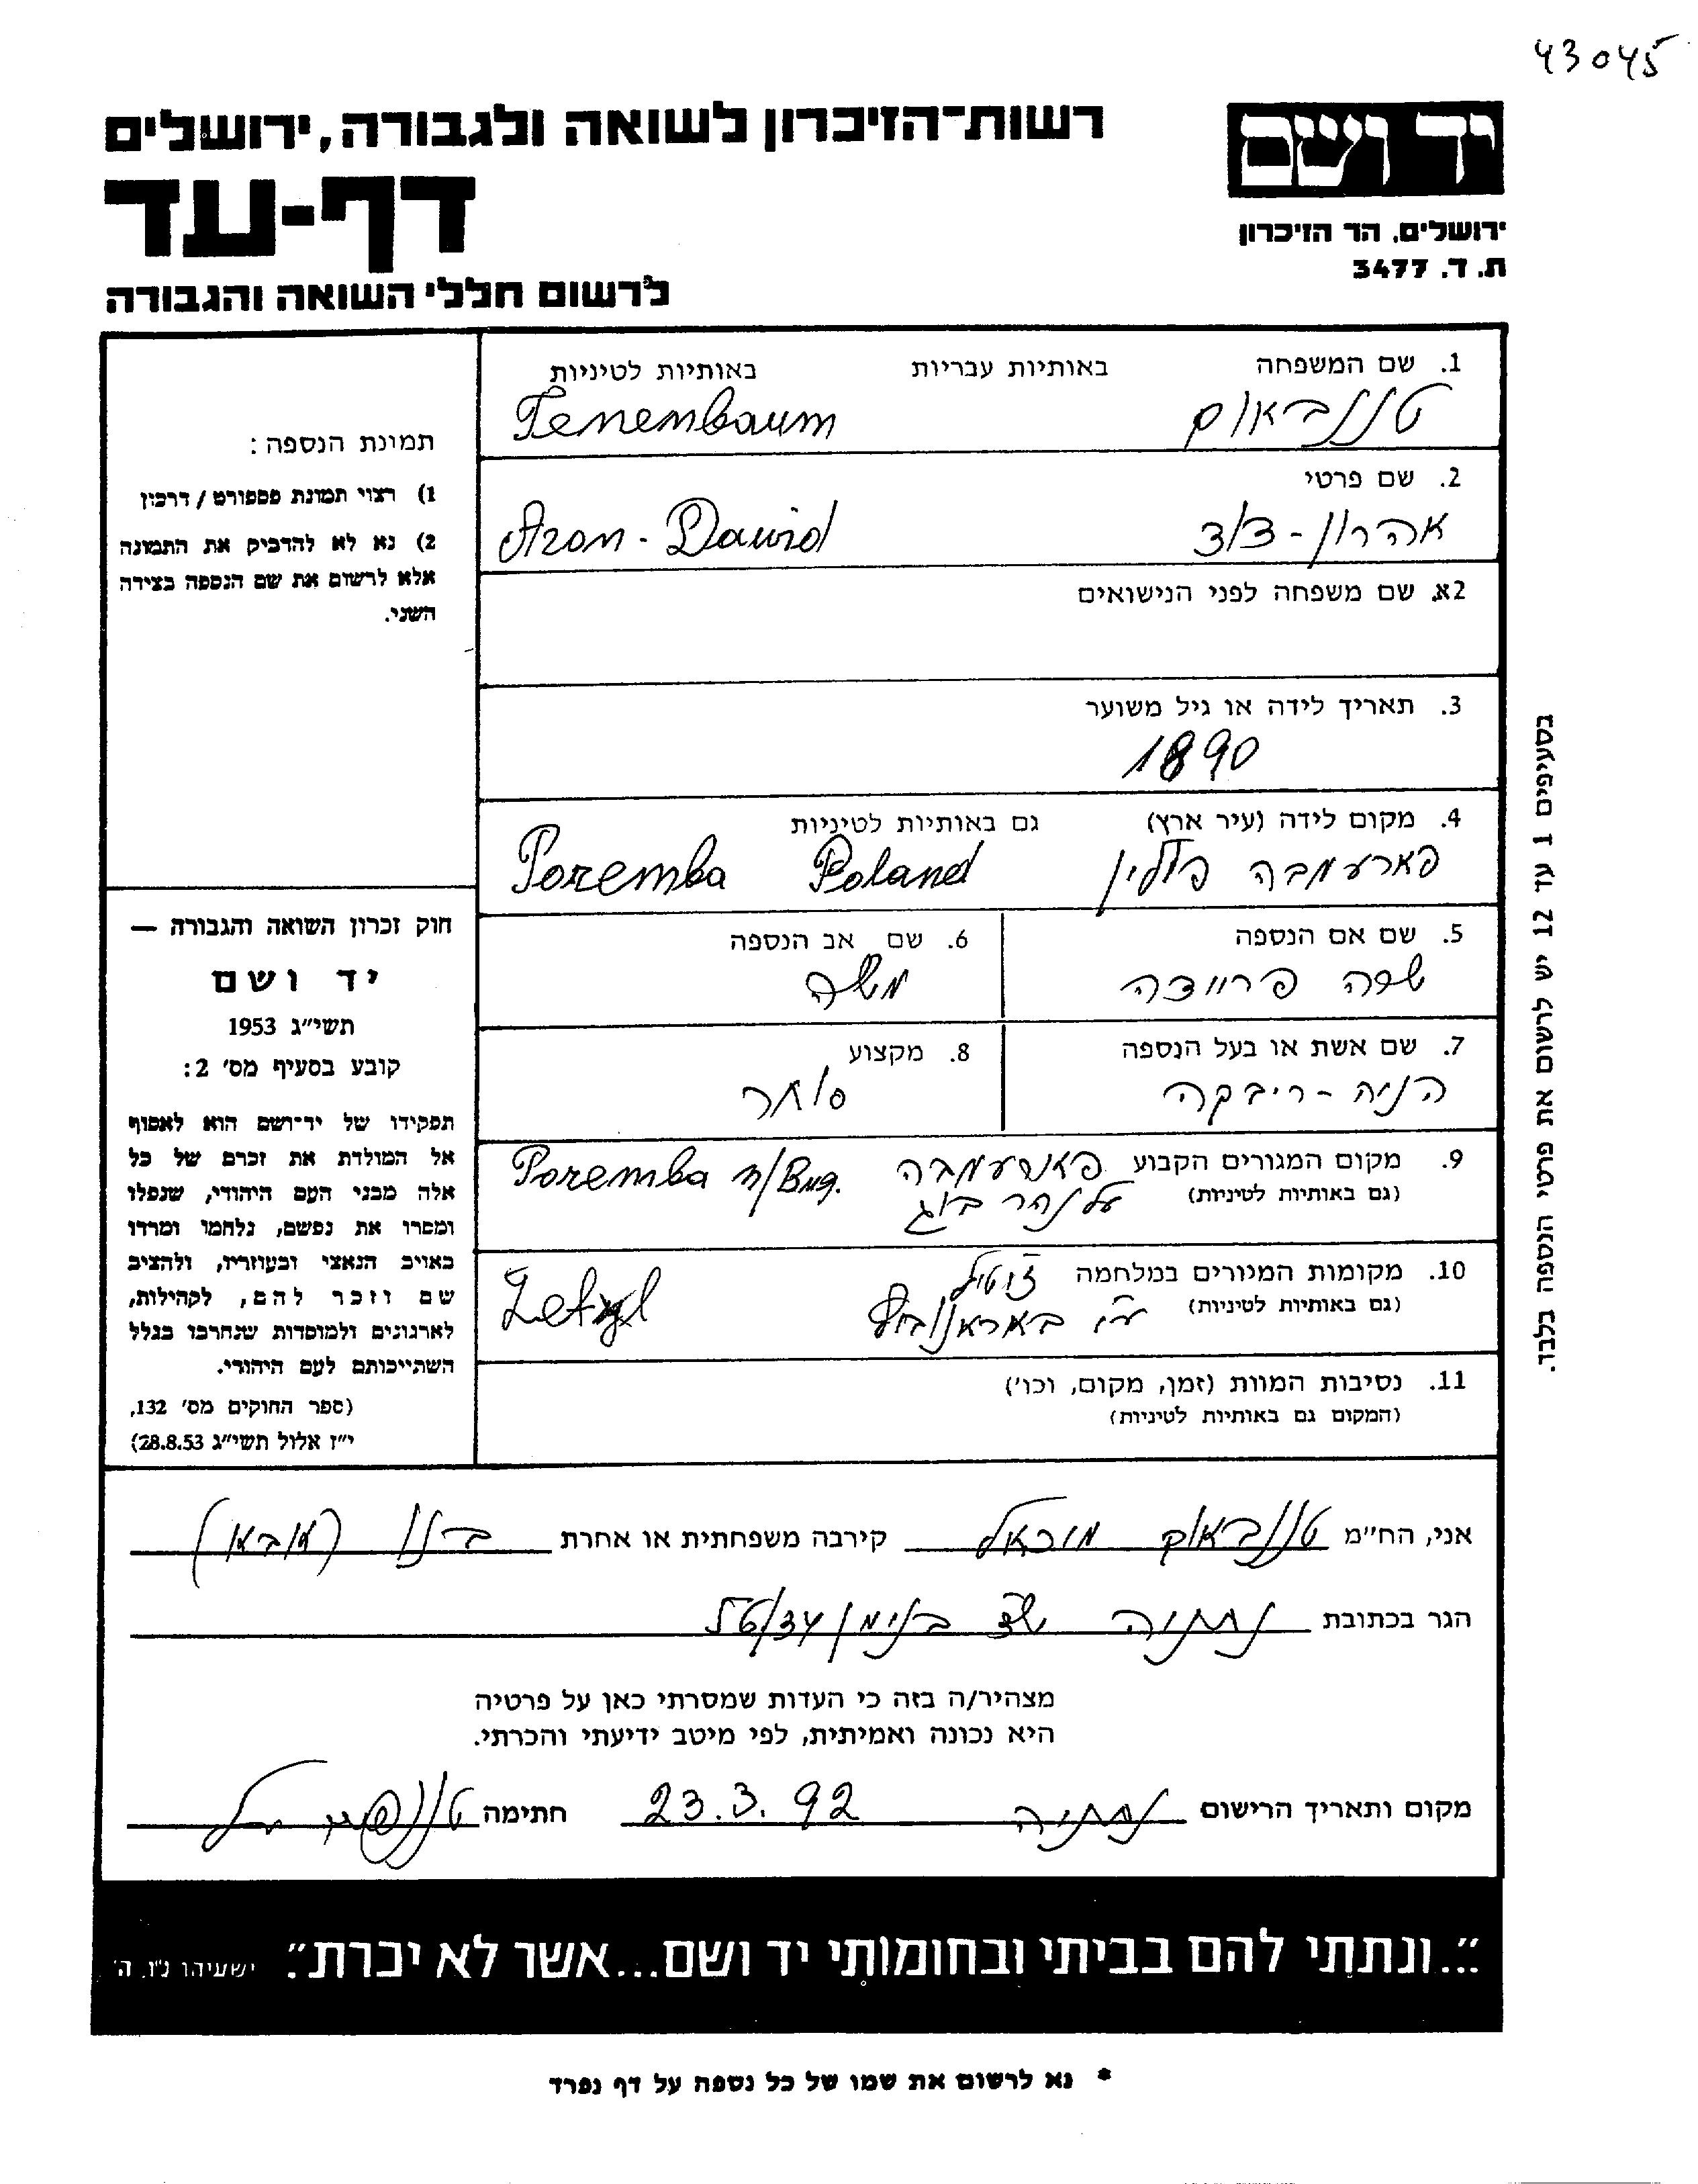 43045
רשות־הזיכרון לשואה ולגבורה, ירושלים
דף-עד
לרשום חללי השואה והגבורה
יד ושם
ירושלים, הר הזיכרון
ת. ד. 3477
תמונת הנספה:
1) רצוי תמונת פספורט / דרכון
2) נא לא להדביק את התמונה
אלא לרשום את שם הנספה בצידה
השני.
חוק זכרון השואה והגבורה —
יד ושם
תשי״ג 1953
קובע בסעיף מס׳ 2:
תפקידו של יד־ושם הוא לאסוף
אל המולדת את זכרם של כל
אלה מבני העם היהודי, שנפלו
ומסרו את נפשם, נלחמו ומרדו
באויב הנאצי ובעוזריו, ולהציב
שם וזכר להם, לקהילות,
לארגונים ולמוסדות שנחרבו בגלל
השתייכותם לעם היהודי.
(ספר החוקים מס׳ 132,
י״ז אלול תשי״ג 28.8.53)
1. שם המשפחה באותיות עבריות באותיות לטיניות
טננבאום Tenembaum
2. שם פרטי
אהרון-דוד Aron-Dawid
2א. שם משפחה לפני הנישואים
3. תאריך לידה או גיל משוער
1890
4. מקום לידה (עיר ארץ) גם באותיות לטיניות
פארעמבה פולין Poremba Poland
5. שם אם הנספה
שרה פרוודה
6. שם אב הנספה
משה
7. שם אשת או בעל הנספה
הניה-ריבקה
8. מקצוע
סוחר
9. מקום המגורים הקבוע פארעמבה Poremba n/Bug.
(גם באותיות לטיניות) על נהר בוג
10. מקומות המגורים במלחמה זיטיל Zetyl
(גם באותיות לטיניות) ע״י באראנוביץ
11. נסיבות המוות (זמן, מקום, וכו׳)
(המקום גם באותיות לטיניות)
אני, הח״מ טננבאום מיכאל קירבה משפחתית או אחרת בנו (אבא)
הגר בכתובת נתניה שד בנימין 56/34
מצהיר/ה בזה כי העדות שמסרתי כאן על פרטיה
היא נכונה ואמיתית, לפי מיטב ידיעתי והכרתי.
מקום ותאריך הרישום נתניה 23.3.92 חתימה
״...ונתתי להם בביתי ובחומותי יד ושם...אשר לא יכרת״. ישעיהו נ״ו, ה׳
* נא לרשום את שמו של כל נספה על דף נפרד
בסעיפים 1 עד 12 יש לרשום את פרטי הנספה בלבד.